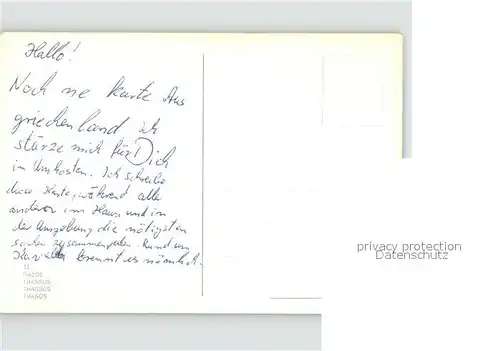 Hallo!
Noch ne Karte Aus
griechenland ich
stürze mich für Dich
in Unkosten. Ich schreibe
diese Karte, während alle
anderen im Haus und in
der Umgebung die nötigsten
sachen zusammenpacken. Rund um
Kavalla brennt es nämlich.
THASOS
THASSOS
THASSOS
THASOS
privacy protection
Datenschutz